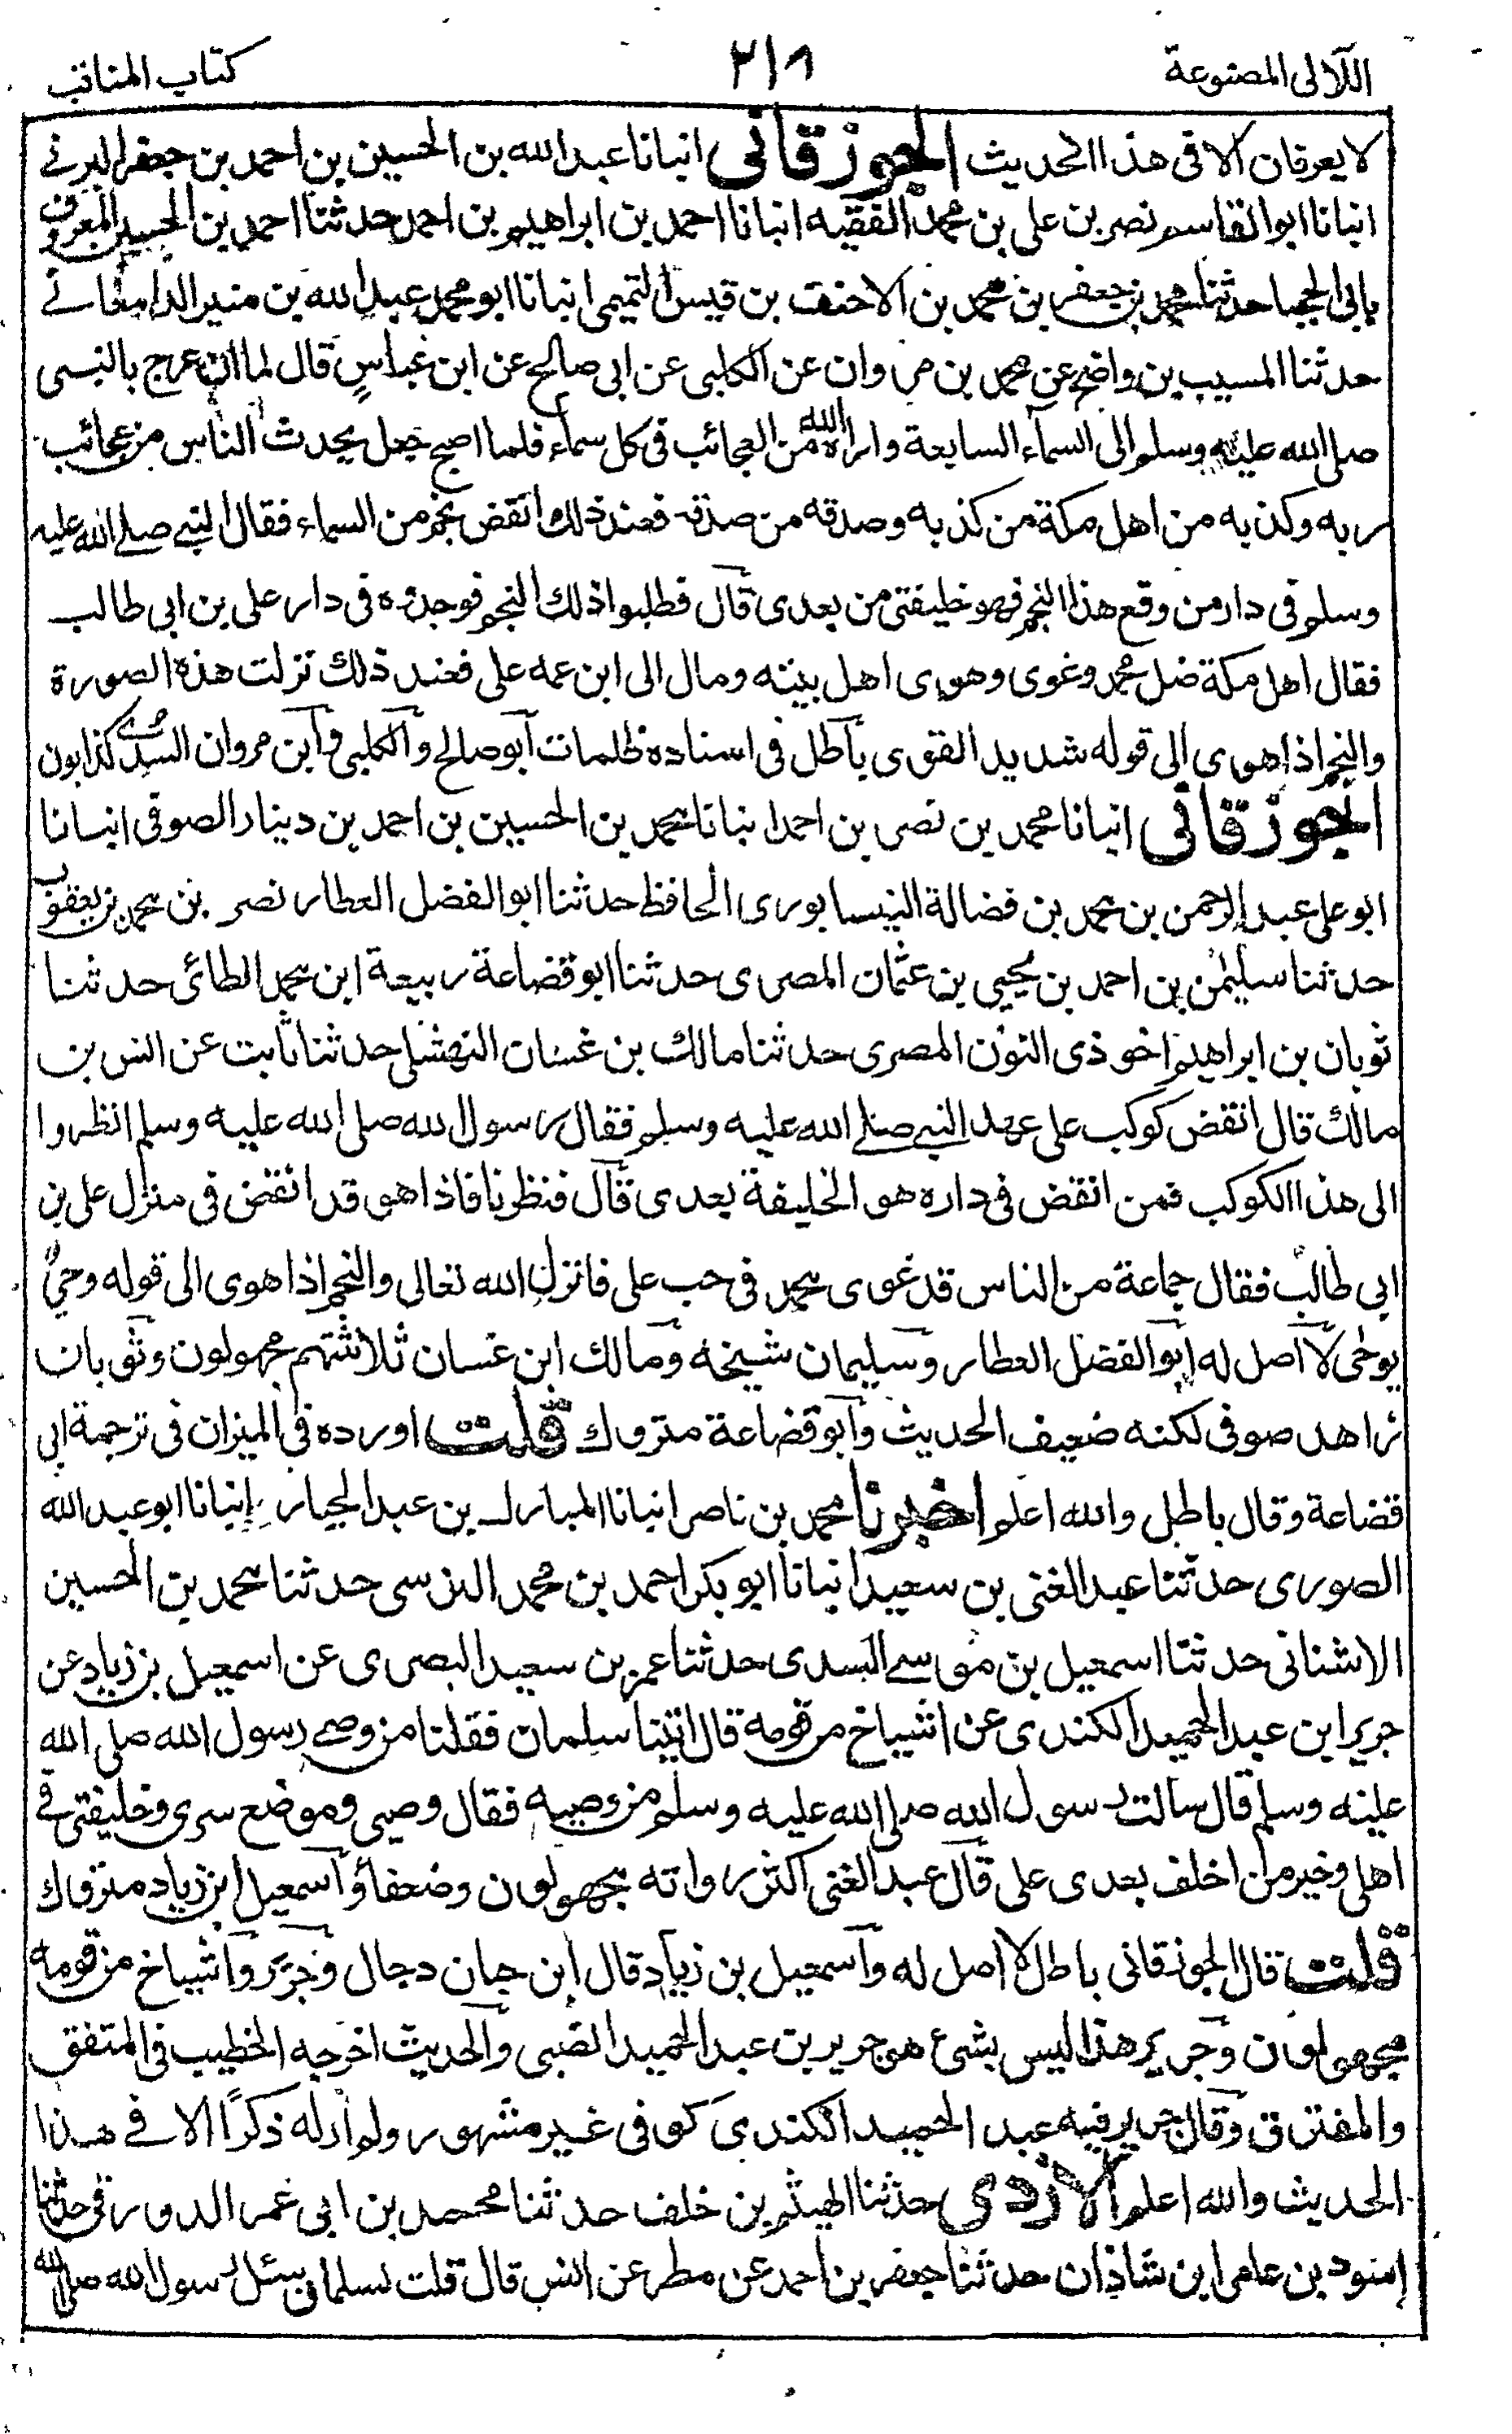 اللآلى المصنوعة
٢١٨
كتاب المناقب
لا يعرفان الا فى هذا الحديث الجوزقانى انبانا عبد الله بن الحسين بن احمد بن جعفر
انبانا ابو القاسم نصر بن على بن محمد الفقيه انبانا احمد بن ابراهيم بن احمد حدثنا احمد بن الحسين المعروف
حدثنا محمد بن جعفر بن محمد بن الاحنف بن قيس التميمى انبانا ابو محمد عبد الله بن منير الدامغانى
حدثنا المسيب بن واضح عن محمد بن مروان عن الكلبى عن ابى صالح عن ابن عباس قال لما ان عرج بالنبى
صلى الله عليه وسلم الى السماء السابعة واراه الله من العجائب فى كل سماء فلما اصبح جعل يحدث الناس من عجائب
ربه وكذبه من اهل مكة من كذبه وصدقه من صدقه فعند ذلك انقض نجم من السماء فقال النبى صلى الله عليه
وسلم فى دار من وقع هذا النجم فهو خليفتى من بعدى قال فطلبوا ذلك النجم فوجدوه فى دار على بن ابى طالب
فقال اهل مكة ضل محمد وغوى وهوى اهل بيته ومال الى ابن عمه على فعند ذلك نزلت هذه الصورة
والنجم اذا هوى الى قوله شديد القوى باطل فى اسناده ظلمات ابو صالح والكلبى وابن مروان السدى كذابون
الجوزقانى انبانا محمد بن نصر بن احمد انبانا محمد بن الحسين بن احمد بن دينار الصوفى انبانا
ابو على عبد الرحمن بن محمد بن فضالة النيسابورى الحافظ حدثنا ابو الفضل العطار نصر بن محمد بن يعقوب
حدثنا سليمن بن احمد بن يحيى بن عثمان المصرى حدثنا ابو قضاعة ربيعة ابن محمد الطائى حدثنا
ثوبان بن ابراهيم اخو ذى النون المصرى حدثنا مالك بن غسان النهشلى حدثنا ثابت عن انس بن
مالك قال انقض كوكب على عهد النبى صلى الله عليه وسلم فقال رسول الله صلى الله عليه وسلم انظروا
الى هذا الكوكب فمن انقض فى داره هو الخليفة بعدى قال فنظرنا فاذا هو قد انقض فى منزل على بن
ابى طالب فقال جماعة من الناس قد غوى محمد فى حب على فانزل الله تعالى والنجم اذا هوى الى قوله وحىٌ
يوحى لا اصل له ابو الفضل العطار وسليمان شيخه ومالك ابن غسان ثلاثتهم مجهولون وثوبان
زاهد صوفى لكنه ضعيف الحديث وابو قضاعة متروك قلت اورده فى الميزان فى ترجمة ابى
قضاعة وقال باطل والله اعلم اخبرنا محمد بن ناصر انبانا المبارك بن عبد الجبار انبانا ابو عبد الله
الصورى حدثنا عبد الغنى بن سعيد انبانا ابو بكر احمد بن محمد النرسى حدثنا محمد بن الحسين
الاشنانى حدثنا اسمعيل بن موسى السدى حدثنا عمر بن سعيد البصرى عن اسمعيل بن زياد عن
جرير ابن عبد الحميد الكندى عن اشياخ من قومه قال اتينا سلمان فقلنا من وصى رسول الله صلى الله
عليه وسلم قال سالت رسول الله صلى الله عليه وسلم من وصيه فقال وصيى وموضع سرى وخليفتى فى
اهلى وخير من اخلف بعدى على قال عبد الغنى اكثر رواته مجهولون وضعفاؤ اسمعيل ابن زياد متروك
قلت قال الجوزقانى باطل لا اصل له واسمعيل بن زياد قال ابن حبان دجال وجرير واشياخ من قومه
مجهولون وجرير هذا ليس بشئ هو جرير بن عبد الحميد الضبى والحديث اخرجه الخطيب فى المتفق
والمفترق وقال جرير فيه عبد الحميد الكندى كوفى غير مشهور ولم ار له ذكرًا الا فى هذا
الحديث والله اعلم الازدى حدثنا الهيثم بن خلف حدثنا محمد بن ابى عمر الدورقى حدثنا
اسود بن عامر ابن شاذان حدثنا جعفر بن احمد عن مطر عن انس قال قلت لسلمان سئل رسول الله صلى الله